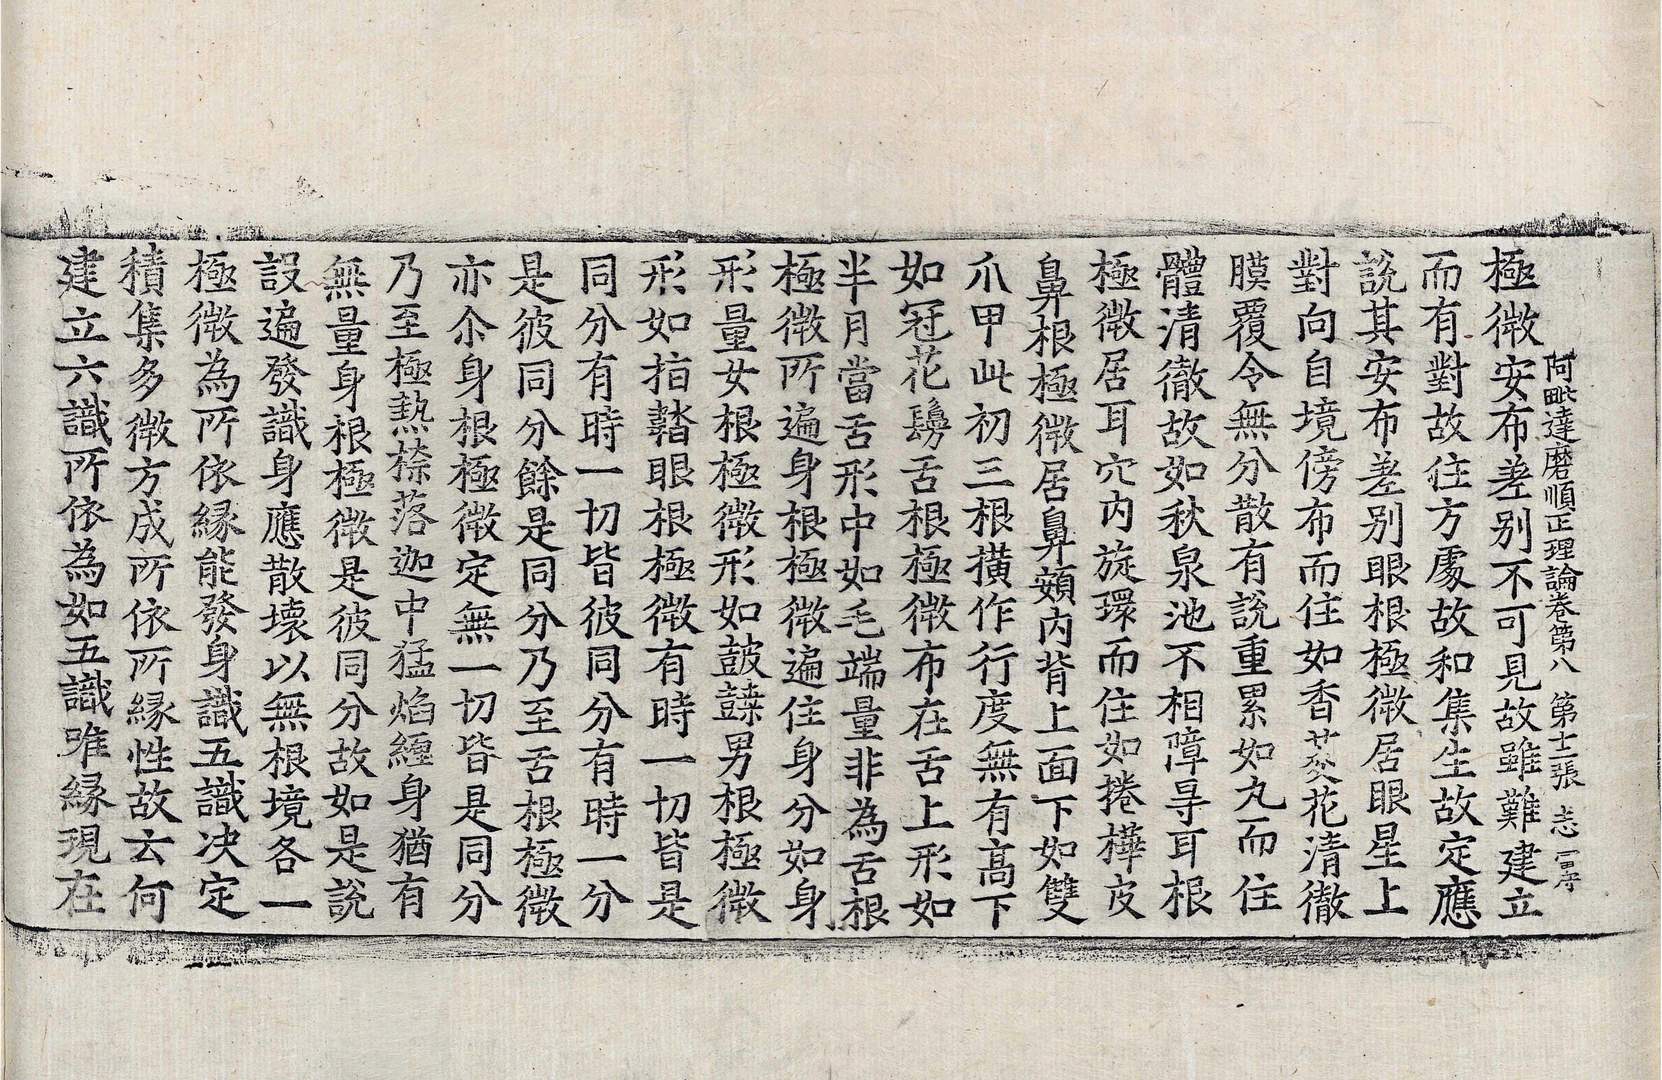 阿毗達磨順正理論卷第八 第十二張 志
極微安布差別不可見故雖難建立
而有對故住方處故和集生故定應
說其安布差別眼根極微居眼星上
對向自境傍布而住如香荾花清徹
膜覆令無分散有說重累如丸而住
體清徹故如秋泉池不相障㝵耳根
極微居耳穴內旋環而住如捲樺皮
鼻根極微居鼻頞內背上面下如雙
爪甲此初三根橫作行度無有高下
如冠花鬘舌根極微布在舌上形如
半月當舌形中如毛端量非為舌根
極微所遍身根極微遍住身分如身
形量女根極微形如鼓𪔛男根極微
形如指䪚眼根極微有時一切皆是
同分有時一切皆彼同分有時一分
是彼同分餘是同分乃至舌根極微
亦尒身根極微定無一切皆是同分
乃至極熱㮈落迦中猛焰纏身猶有
無量身根極微是彼同分故如是說
設遍發識身應散壞以無根境各一
極微為所依緣能發身識五識決定
積集多微方成所依所緣性故云何
建立六識所依為如五識唯緣現在